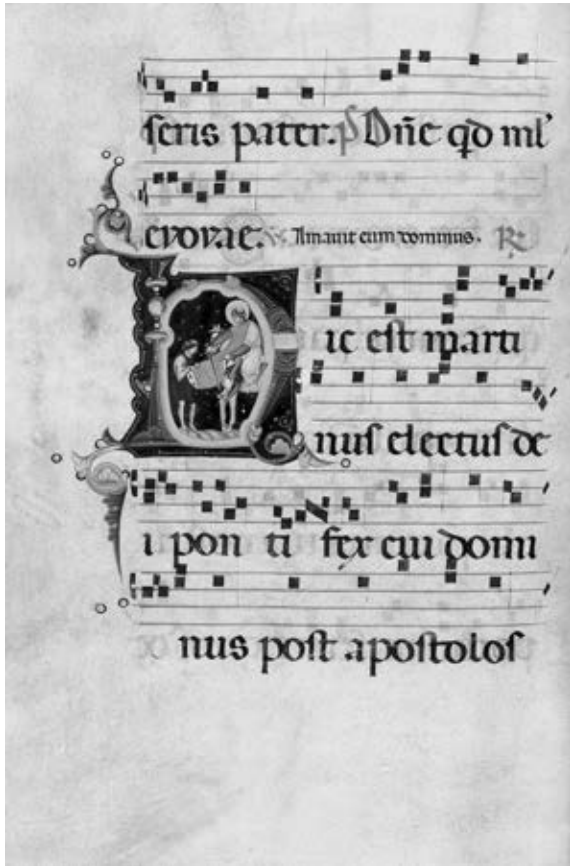 seris pater. p̃ Dñe qd ml'
evovae. V. Amavit eum dominus. R:
Hic est marti
nus electus de
i pon ti fex cui domi
nus post apostolos